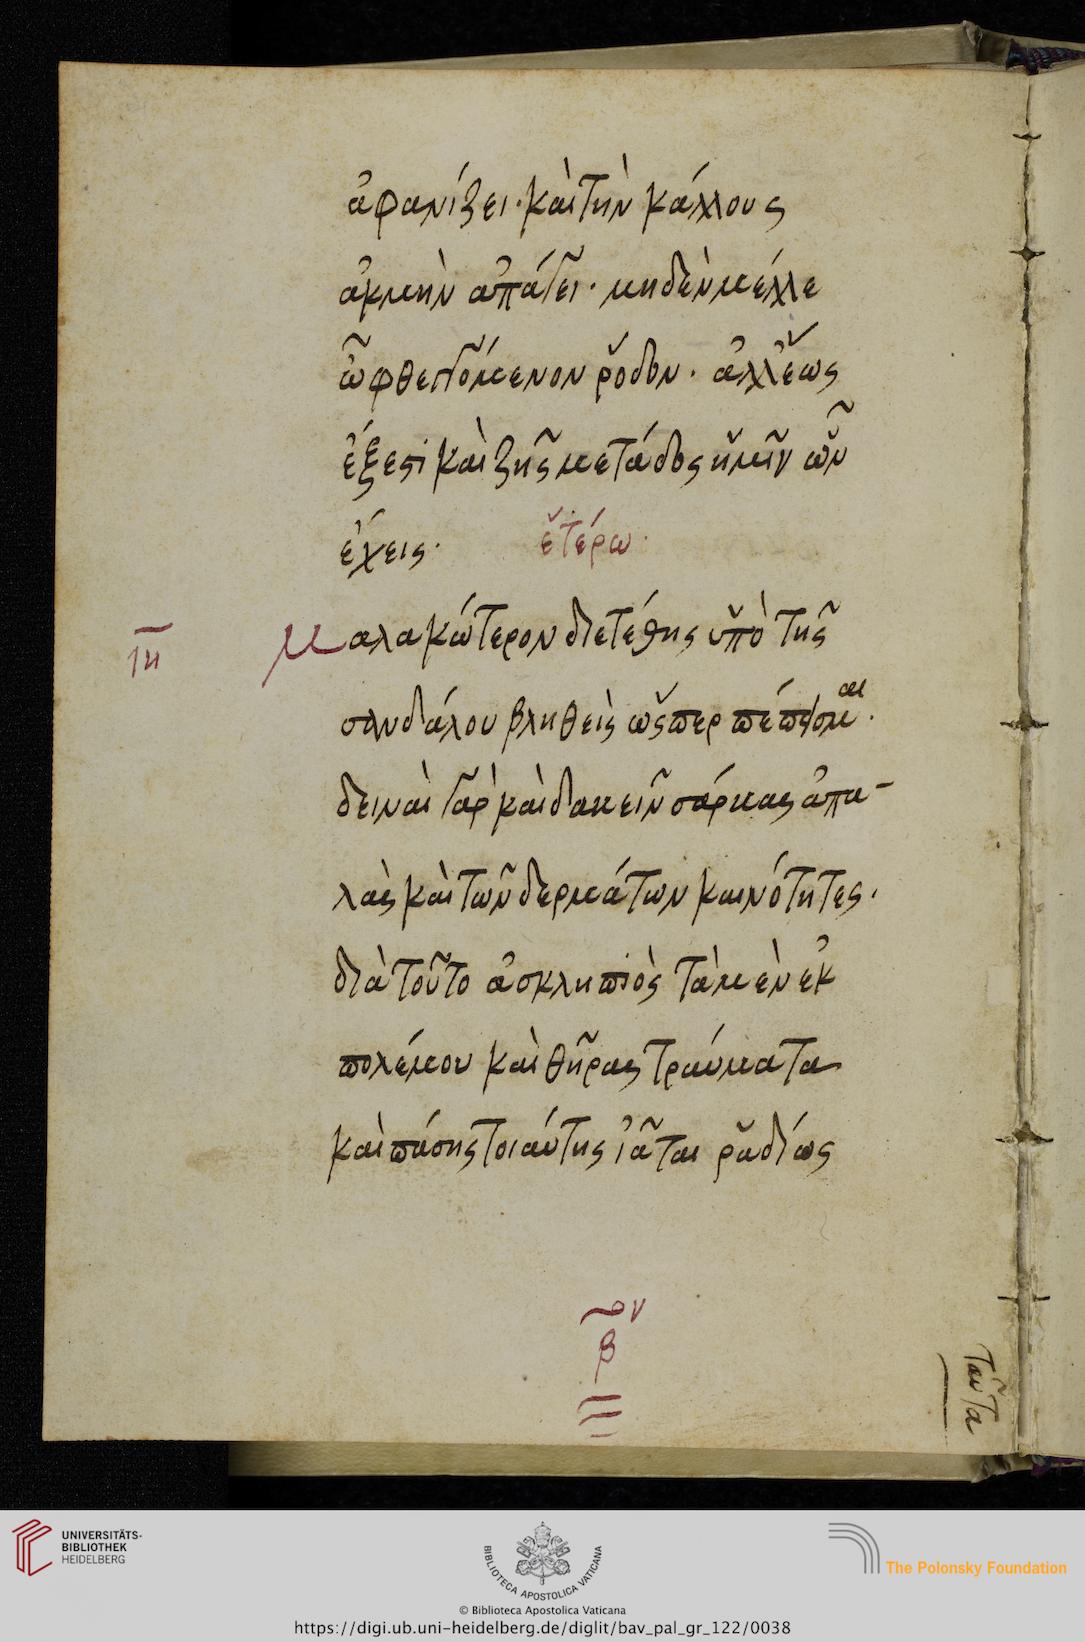 ἀφανίζει· καὶ τὴν κάλλους
ἀκμὴν ἀπάγει· μηδὲν μέλλε
ὦ φθεγγόμενον ῥόδον· ἀλλ' ἕως
ἔξεστι καὶ ζῇς μετάδος ἡμῖν ὧν
ἔχεις· ἑτέρω·
ιη
Μαλακώτερον διετέθης ὑπὸ τῆς
σανδάλου βληθεὶς ὥσπερ πέπυσμαι·
δειναὶ γὰρ καὶ δακεῖν σάρκας ἁπα-
λὰς καὶ τῶν δερμάτων καινότητες·
διὰ τοῦτο ἀσκληπιὸς τὰ μὲν ἐκ
πολέμου καὶ θήρας τραύματα
καὶ πάσης τοιαύτης ἰᾶται ῥαδίως
β
ταῦτα
UNIVERSITÄTS-
BIBLIOTHEK
HEIDELBERG
BIBLIOTECA APOSTOLICA VATICANA
The Polonsky Foundation
© Biblioteca Apostolica Vaticana
https://digi.ub.uni-heidelberg.de/diglit/bav_pal_gr_122/0038